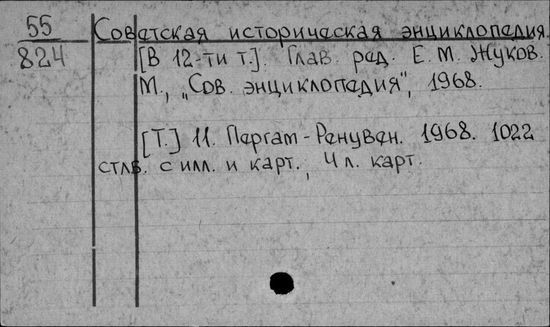 55
824
Советская историческая энциклопедия.
[В 12-ти т.]. Глав. ред. Е. М. Жуков.
М., „Сов. энциклопедия", 1968.
[Т.] 11. Пергам-Ренувен. 1968. 1022
стлб. с илл. и карт., 4 л. карт.